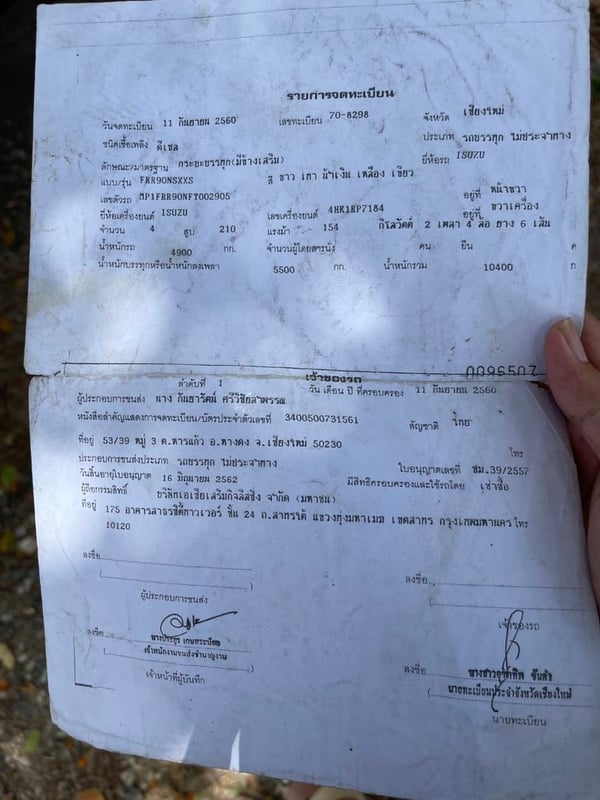 รายการจดทะเบียน
วันจดทะเบียน 11 กันยายน 2560 เลขทะเบียน 70-8298 จังหวัด เชียงใหม่
ชนิดเชื้อเพลิง ดีเซล ประเภท รถบรรทุก ไม่ประจำทาง
ลักษณะ/มาตรฐาน กระบะบรรทุก(มีข้างเสริม) ยี่ห้อรถ ISUZU
แบบ/รุ่น FRR90NSXXS สี ขาว เทา น้ำเงิน เหลือง เขียว
เลขตัวรถ MP1FRR90NFT002905 อยู่ที่ หน้าขวา
ยี่ห้อเครื่องยนต์ ISUZU เลขเครื่องยนต์ 4HK1RP7184 อยู่ที่ ขวาเครื่อง
จำนวน 4 สูบ 210 แรงม้า 154 กิโลวัตต์ 2 เพลา 4 ล้อ ยาง 6 เส้น
น้ำหนักรถ 4900 กก. จำนวนผู้โดยสารนั่ง คน ยืน ค
น้ำหนักบรรทุกหรือน้ำหนักลงเพลา 5500 กก. น้ำหนักรวม 10400 ก
0096507
เจ้าของรถ
ลำดับที่ 1 วัน เดือน ปี ที่ครอบครอง 11 กันยายน 2560
ผู้ประกอบการขนส่ง นาง กันยารัตน์ ศรีวิชัยลำพรรณ
หนังสือสำคัญแสดงการจดทะเบียน/บัตรประจำตัวเลขที่ 3400500731561 สัญชาติ ไทย
ที่อยู่ 53/39 หมู่ 3 ต.หารแก้ว อ.หางดง จ.เชียงใหม่ 50230 โทร
ประกอบการขนส่งประเภท รถบรรทุก ไม่ประจำทาง ใบอนุญาตเลขที่ ชม.39/2557
วันสิ้นอายุใบอนุญาต 16 มิถุนายน 2562 มีสิทธิครอบครองและใช้รถโดย เช่าซื้อ
ผู้ถือกรรมสิทธิ์ บริษัทเอเซียเสริมกิจลีสซิ่ง จำกัด (มหาชน)
ที่อยู่ 175 อาคารสาธรซิตี้ทาวเวอร์ ชั้น 24 ถ.สาทรใต้ แขวงทุ่งมหาเมฆ เขตสาทร กรุงเทพมหานคร โทร
10120
ลงชื่อ ลงชื่อ
ผู้ประกอบการขนส่ง เจ้าของรถ
ลงชื่อ ลงชื่อ
เจ้าพนักงานขนส่งชำนาญงาน นายทะเบียนประจำจังหวัดเชียงใหม่
เจ้าหน้าที่ผู้บันทึก นายทะเบียน